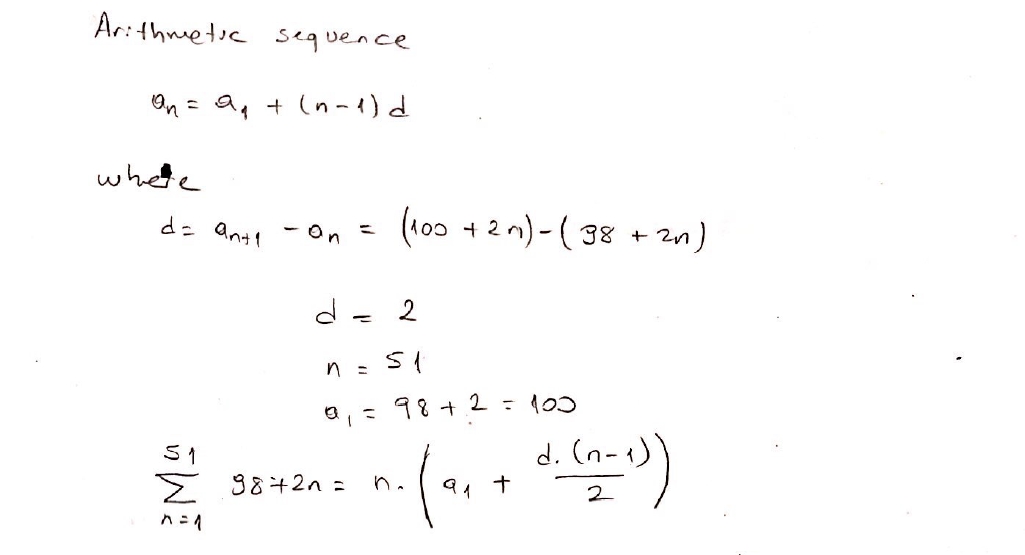 Arithmetic sequence
an = a1 + (n-1) d
where
d = an+1 - an = (100 + 2n) - (98 + 2n)
d = 2
n = 51
a1 = 98 + 2 = 100
51
∑ 98+2n = n. (a1 + d.(n-1)/2)
n=1